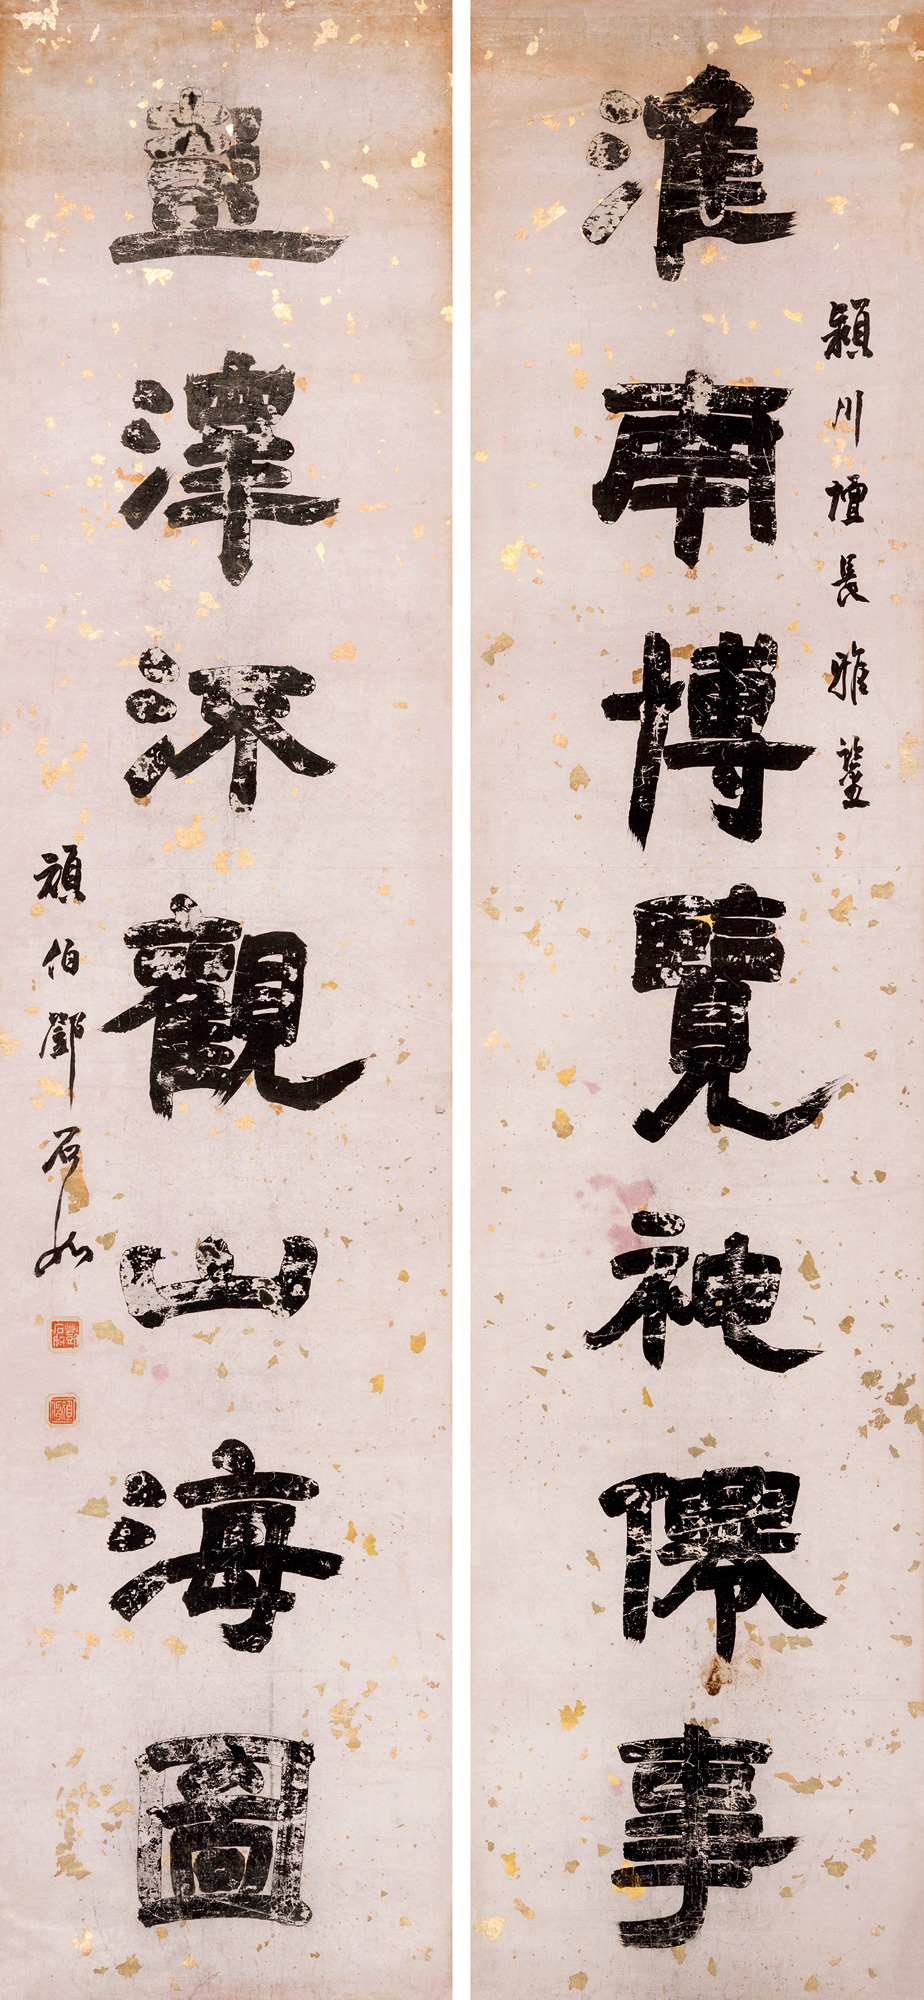 淮南博覽神僊事
穎川壇長雅鑒
彭澤㳅觀山海圖
頑伯鄧石如
鄧石如
頑伯